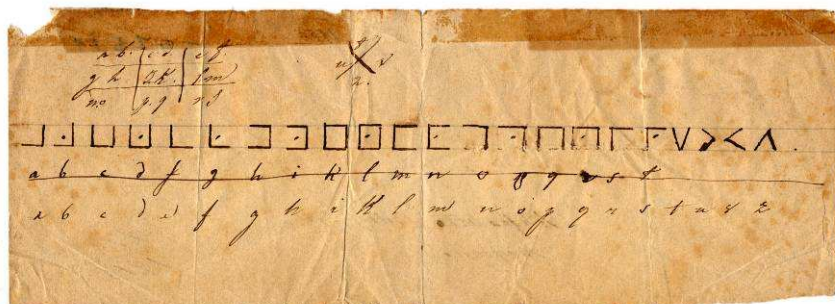 a b. c d e f
g h i k. l m
n o p. q r s
t
u x
z.
a b c d f g h i k l m n o p q r s t
a b c d e f g h i k l m n o p q r s t u x z